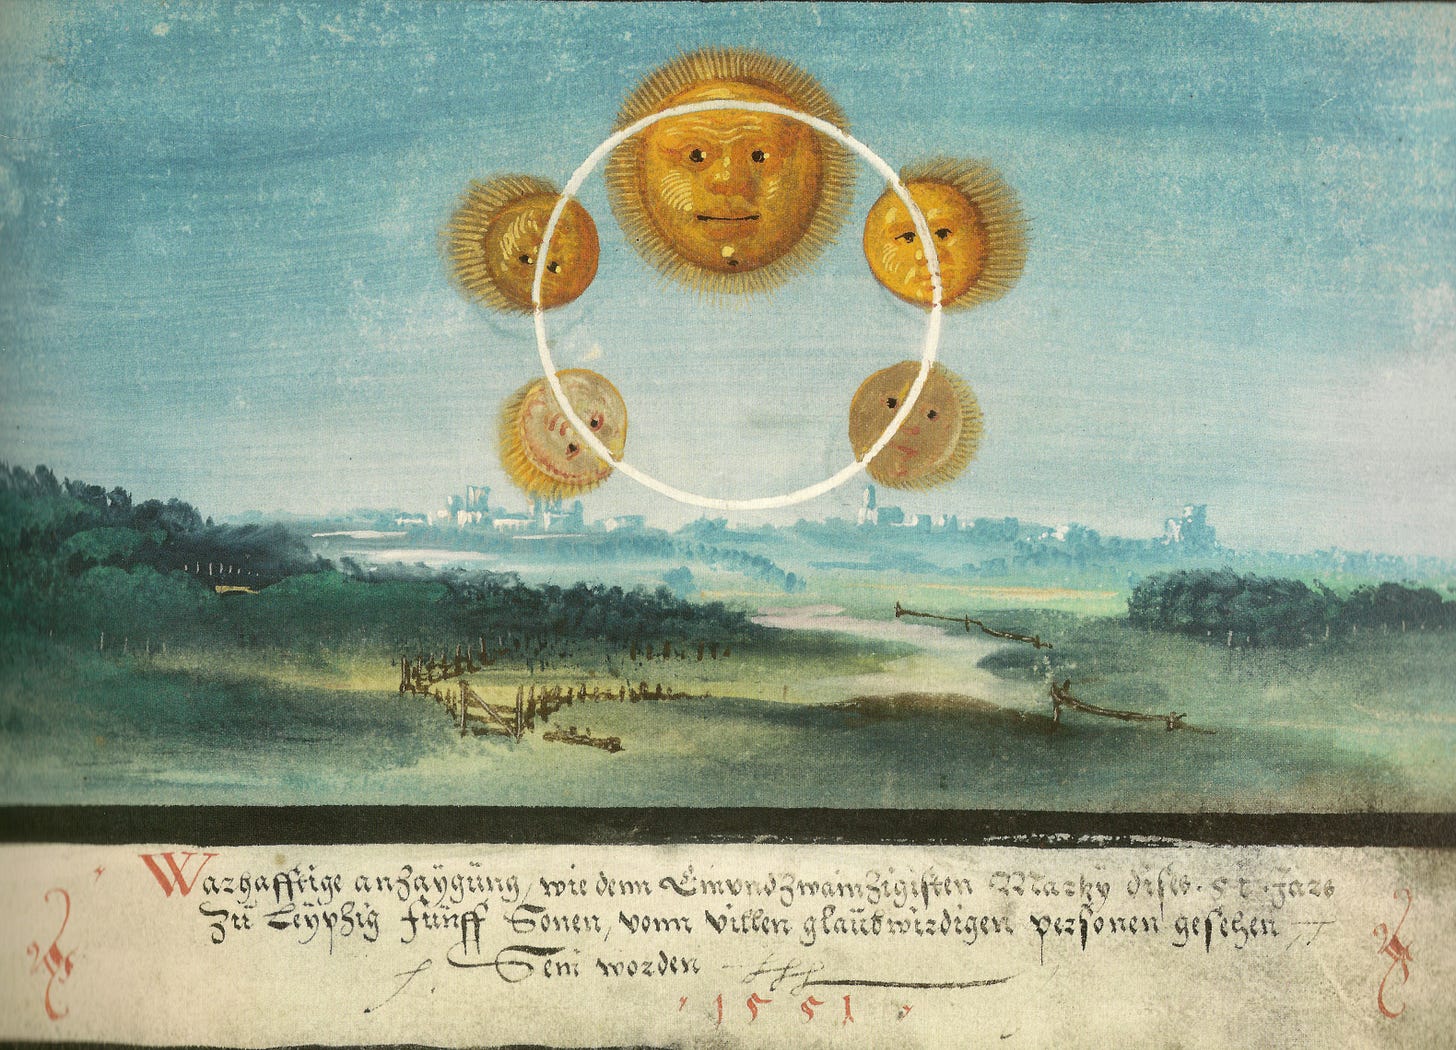 Warhafftige anzaygüng, wie denn Einvndzwainzigisten Martzy dises · 51 · Jars
Zü Leypzig fünff Sonen, vonn villen glaübwirdigen personen gesehen
Sein worden
· 1551 ·